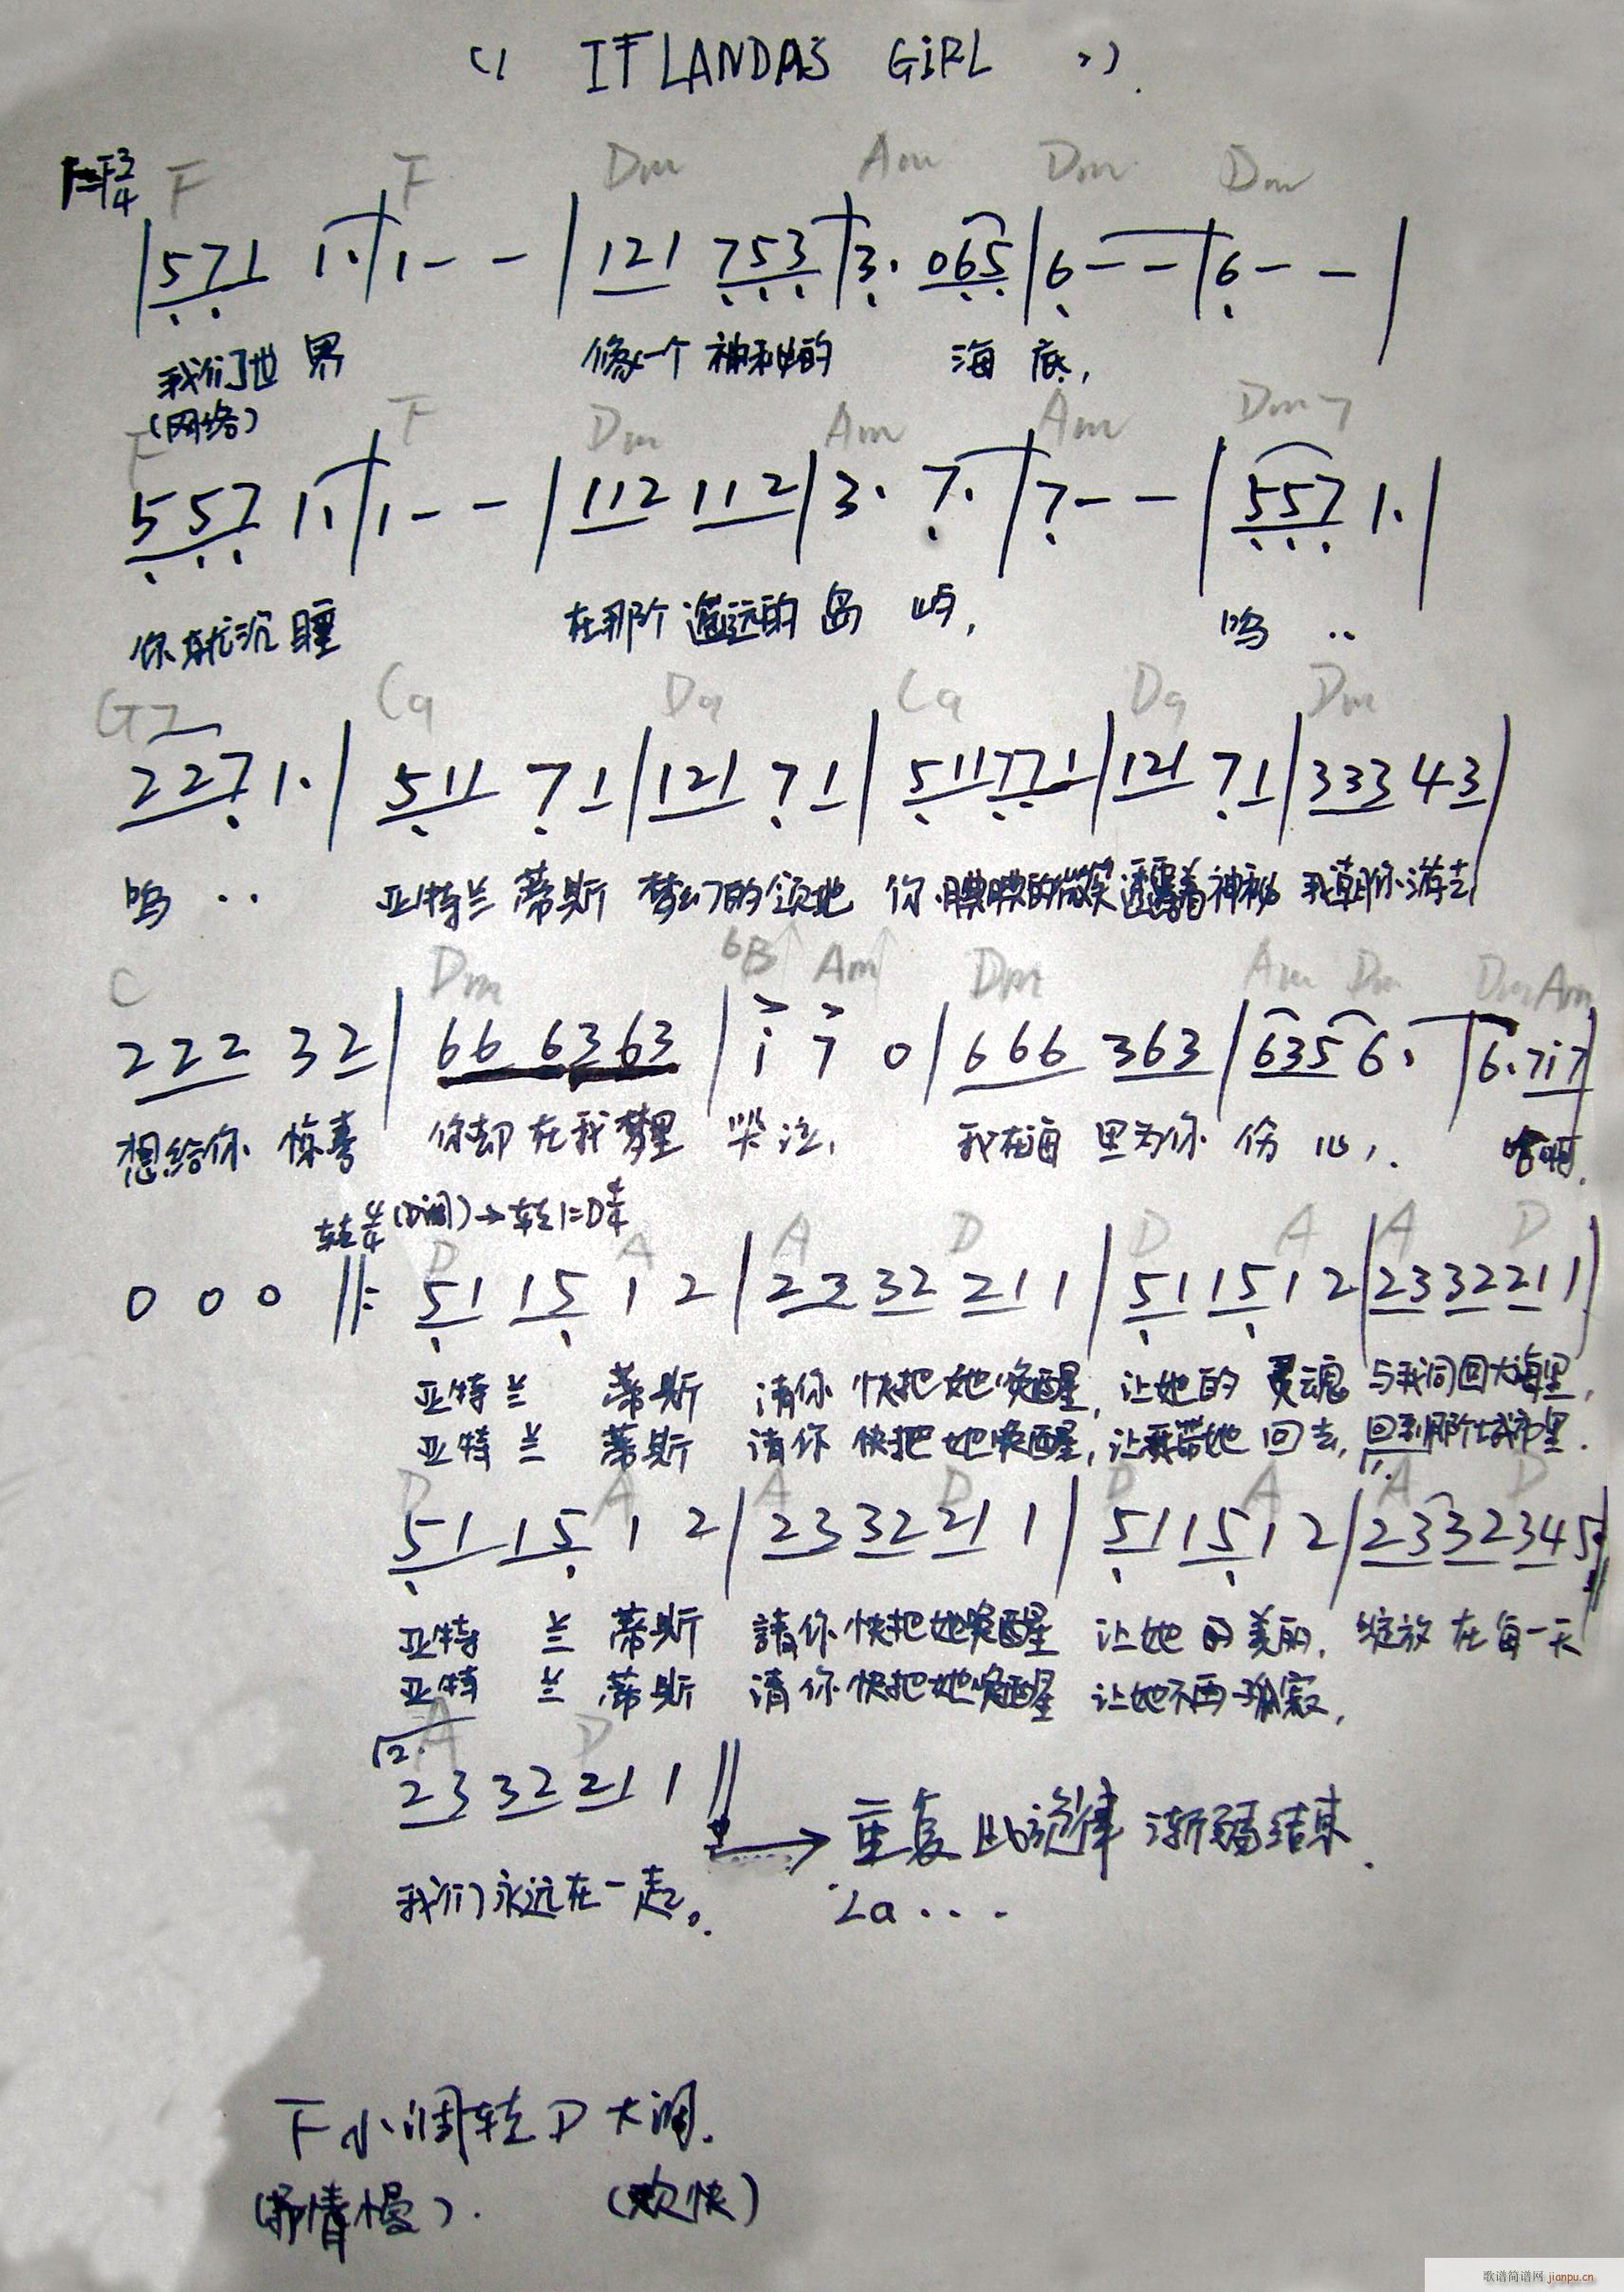 《 ITLANDAS GiRL 》
1=F 3/4 F F Dm Am Dm Dm
| 571 1. | 1 - - | 121 753 | 3. 065 | 6 - - | 6 - - |
我们世界 像一个神秘的 海底,
(网络)
F F Dm Am Am Dm7
557 1. | 1 - - | 112 112 | 3. 7. | 7 - - | 557 1. |
你就沉睡 在那个遥远的岛屿, 呜 ..
G7 C9 D9 C9 D9 Dm
227 1. | 511 7 1 | 121 7 1 | 511 771 | 121 7 1 | 333 4 3 |
呜 .. 亚特兰蒂斯 梦幻的领地 你腆腆的微笑透露着神秘 我朝你游去
C Dm bB Am Dm Am Dm Dm Am
222 3 2 | 66 6363 | i 7 0 | 666 363 | 635 6. | 6. 7i7
想给你 惊喜 你却在我梦里 哭泣, 我在海里为你 伤心,. 啊.
转4/4 (D调) → 转1=D 4/4
D A A D D A A D
0 0 0 ‖: 51 15 1 2 | 23 32 21 1 | 51 15 1 2 | 23 32 21 1 |
亚特兰 蒂斯 请你快把她唤醒, 让她的灵魂 与我同回大海里,
亚特兰 蒂斯 请你快把她唤醒, 让我带她回去, 回到那个城市里.
D A A D D A A D
51 15 1 2 | 23 32 21 1 | 51 15 1 2 | 23 32 34 5 :‖
亚特兰蒂斯 請你快把她唤醒 让她的美丽, 绽放在每一天
亚特兰蒂斯 请你快把她唤醒 让她不再孤寂,
2. A D
23 32 21 1 ‖ → 重复此旋律渐弱结束.
我们永远在一起。 La...
F小调转D大调.
(抒情慢). (欢快)
歌谱简谱网 jianpu.cn